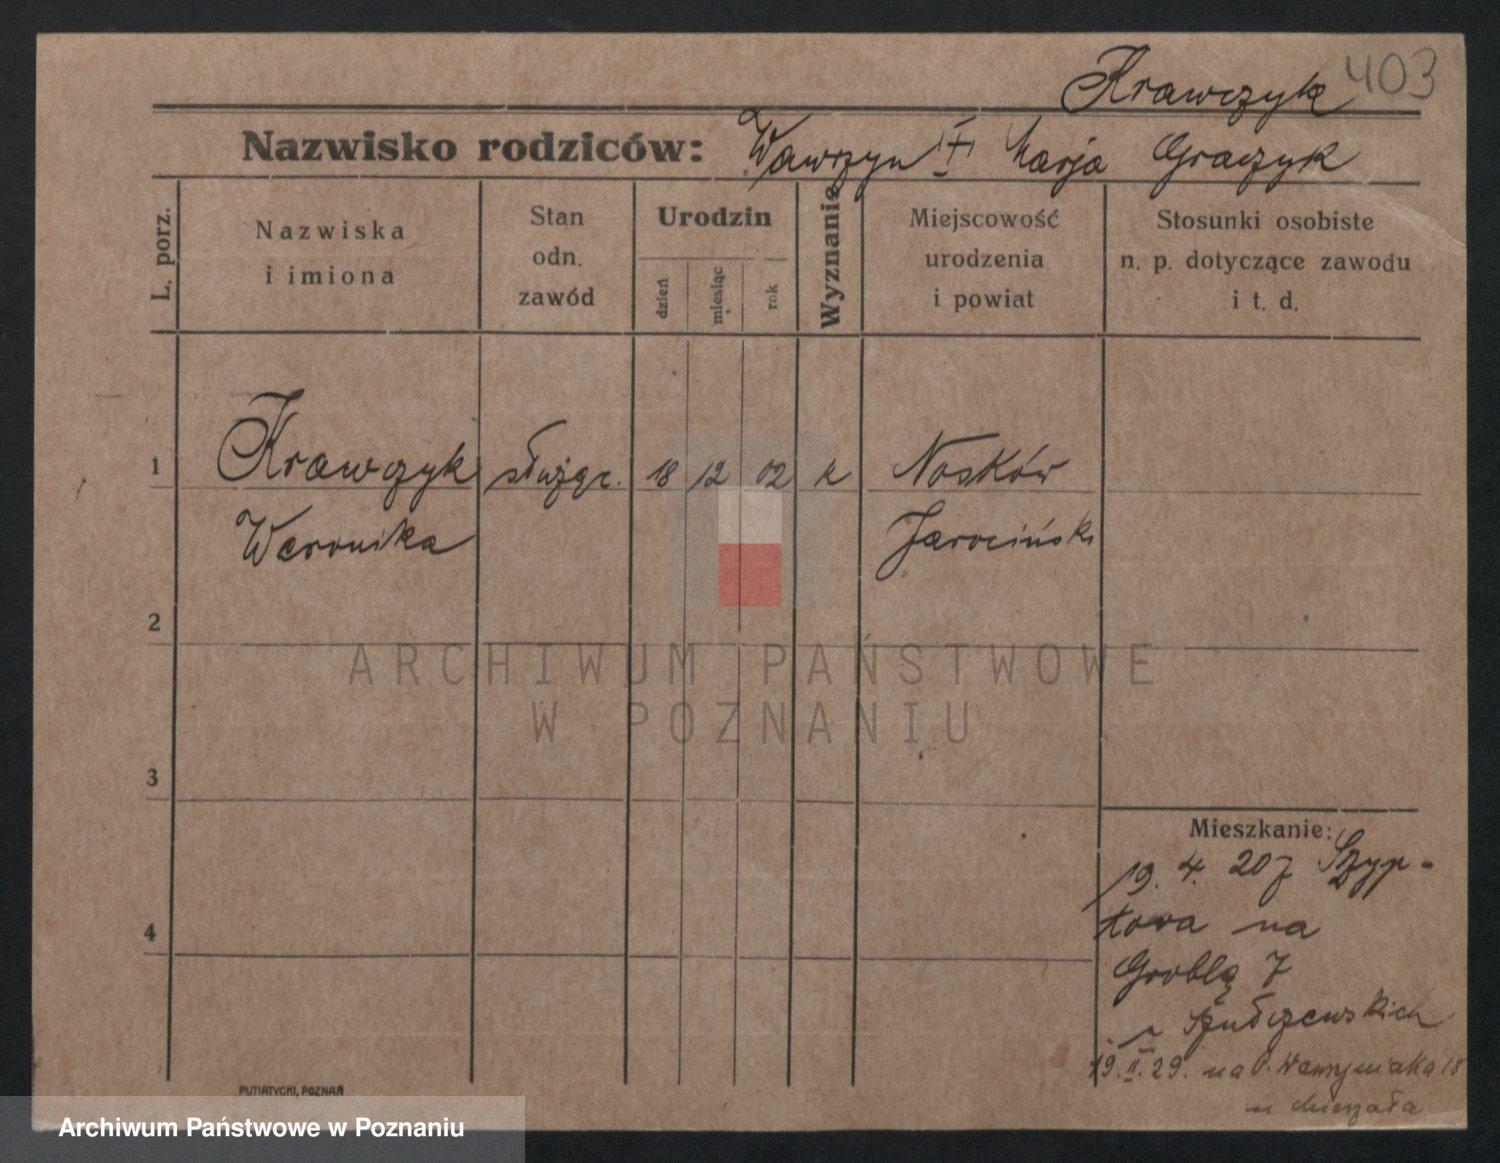 Krawczyk 403
Nazwisko rodziców: Wawrzyn Marja Graczyk
L. porz.
Nazwiska
i imiona
Stan
odn.
zawód
Urodzin
dzień
miesiąc
rok
Wyznanie
Miejscowość
urodzenia
i powiat
Stosunki osobiste
n. p. dotyczące zawodu
i t. d.
1 Krawczyk służąc. 18 12 02 k Nosków
Weronika Jarociński
2
3
4
Mieszkanie:
19. 4. 20 z Szyp-
łowa na
Groblą 7
Szułczewskich
19. II. 29. na P. Wawrzyniaka 18
PUTIATYCKI, POZNAŃ
ARCHIWUM PAŃSTWOWE
W POZNANIU
Archiwum Państwowe w Poznaniu